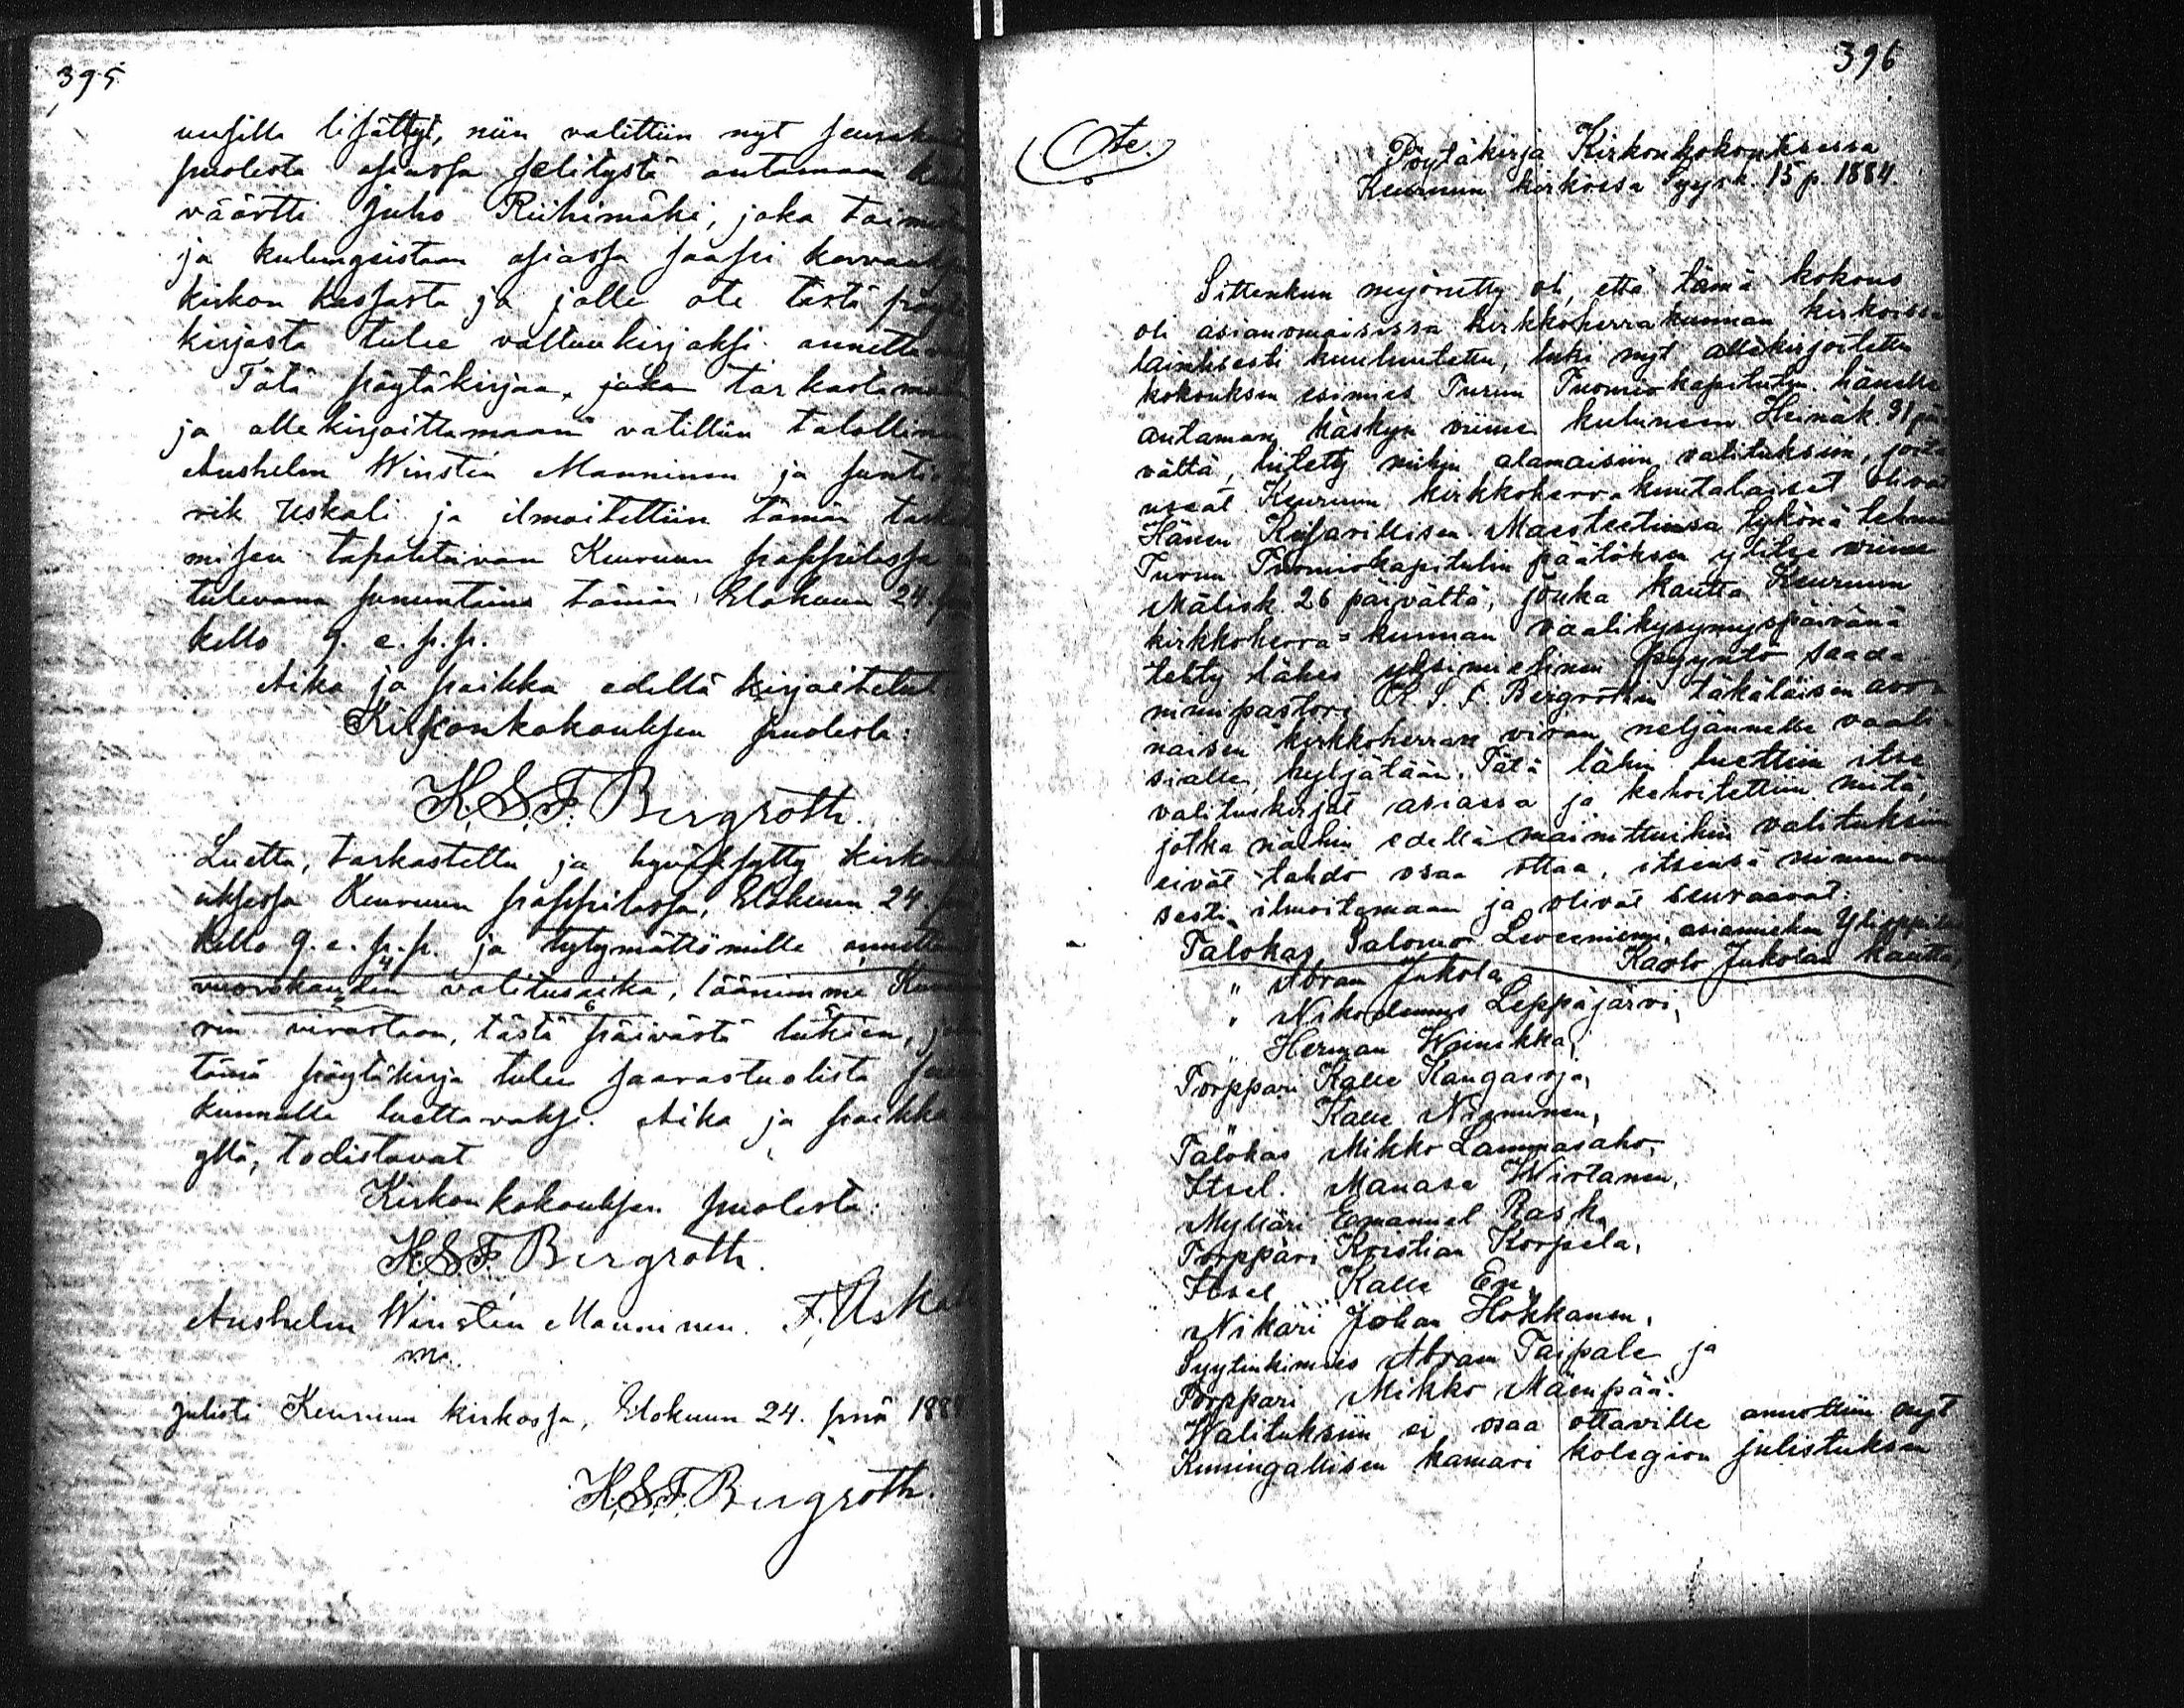 395
uusilla lisättyi, niin valittiin nyt
puolesta asiassa selitystä antamaan
väärtti Juho Riihimäki, joka
ja kulungeistaan asiassa saapi
kirkon kassasta ja jolle ote tästä
kirjasta tulee valtuukirjaksi
Tätä pöytäkirjaa, joka
ja allekirjoittamaan valittiin
Anshelm Winstén Manninen ja
rik Uskali ja ilmoitettiin tämän
misen tapahtuvan Keuruun pappilassa
tulevana sunnuntaina tämän Elokuun 24.
kello 9. e. p. p.
Aika ja paikka edellä kirjoitetut
Kirkonkokouksen puolesta:
K. S. F. Bergroth.
Luettu, tarkastettu ja hyväksytty
uksessa Keuruun pappilassa, Elokuun 24.
kello 9. e. p. p. ja tytymättömille
vuorokauden valitusaika, läänimme
rin virastoon, tästä päivästä lukien,
tämä pöytäkirja tulee saarastuolista
kunnalle luettavaksi. Aika ja paikka
yllä, todistavat
Kirkonkokouksen puolesta:
K. S. F. Bergroth.
Anshelm Winstén Manninen. F. Uskali
julisti Keuruun kirkossa, Elokuun 24. pnä
K. S. F. Bergroth.
396
Ote.
Pöytäkirja Kirkonkokouksessa
Keuruun kirkossa Syysk. 15 p. 1884.
Sittenkun myönnetty oli, että tämä kokous
oli asianomaisissa kirkkoherrakunnan kirkoissa
laillisesti kuulutettu, luki nyt allekirjoitettu
kokouksen esimies Turun Tuomiokapitulin hänelle
antaman käskyn viime kuluneen Heinäk. 31 päi
vältä, liitetty niihin alamaisiin valituksiin, joita
useat Keuruun kirkkoherra-kuntalaiset olivat
Hänen Keisarillisen Maesteetinsa tykönä tehneet
Turun Tuomiokapitulin päätöksen ylitse viime
Mälisk. 26 päivältä, jonka kautta Keuruun
kirkkoherra=kunnan vaalikysymyspäivänä
tehty lähes yksimielinen pyyntö saada
nimipastori K. S. F. Bergrothin täkäläisen avo-
naisen kirkkoherran viran neljännelle vaali-
sialle, hyljätään. Tätä lähin luettiin itse
valituskirjat asiassa ja kehoitettiin niitä,
jotka näihin edellämainittuihin valituksiin
eivät tahdo osaa ottaa, itsensä
sesti ilmoitamaan ja olivat seuraavat:
Talokas Salomo Leveeniemi, asiamiehen Ylioppilas
Kaarlo Jukolan kautta,
" Abram Jukola,
" Nikodemus Leppäjärvi,
" Herman Wiinikka,
Torppari Kalle Kangasoja,
" Kalle Nieminen,
Talokas Mikko Lammasaho,
Itsel. Manase Wirtanen,
Mylläri Emanuel Rask,
Torppari Kristian Korpela,
Itsel. Kalle En,
Nikari Johan Hokkanen,
Syytinkimies Abram Taipale ja
Torppari Mikko Mäenpää.
Walituksiin ei osaa ottaville annettiin nyt
Kuningallisen kamari kolegion julistuksen